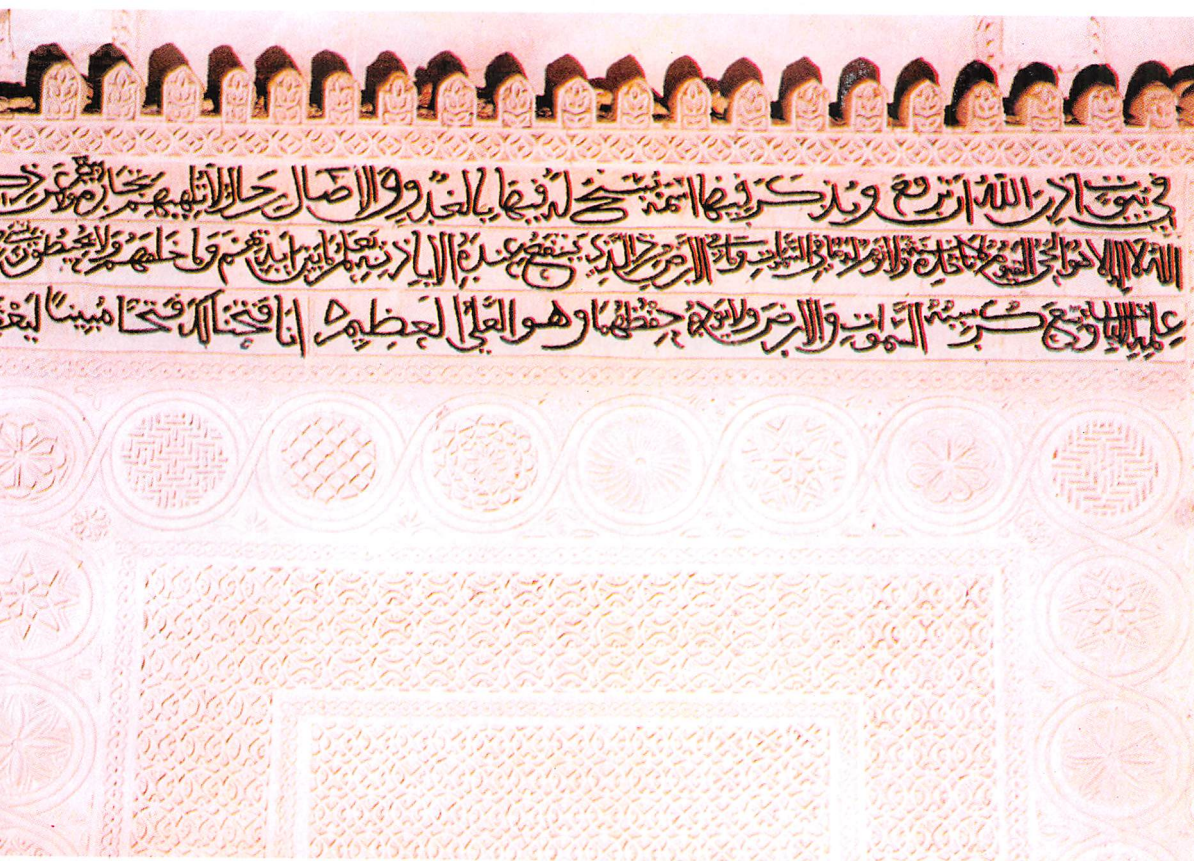 في بيوت اذن الله ان ترفع ويذكر فيها اسمه يسبح له فيها بالغدو والاصال رجال لا تلهيهم تجارة
الله لا اله الا هو الحي القيوم لا تاخذه سنة ولا نوم له ما في السموات وما في الارض من ذا الذي يشفع عنده الا باذنه يعلم ما بين ايديهم وما خلفهم ولا يحيطون
علمه الا بما شاء وسع كرسيه السموات والارض ولا يؤده حفظهما وهو العلي العظيم انا فتحنا لك فتحا مبينا ليغفر